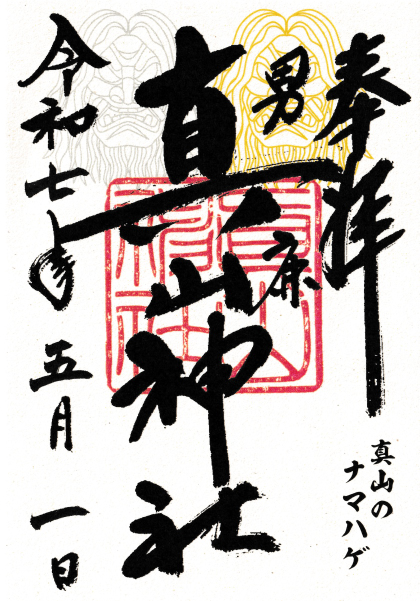 奉拝
男鹿
真山神社
真山
神社
令和七年五月一日
真山の
ナマハゲ